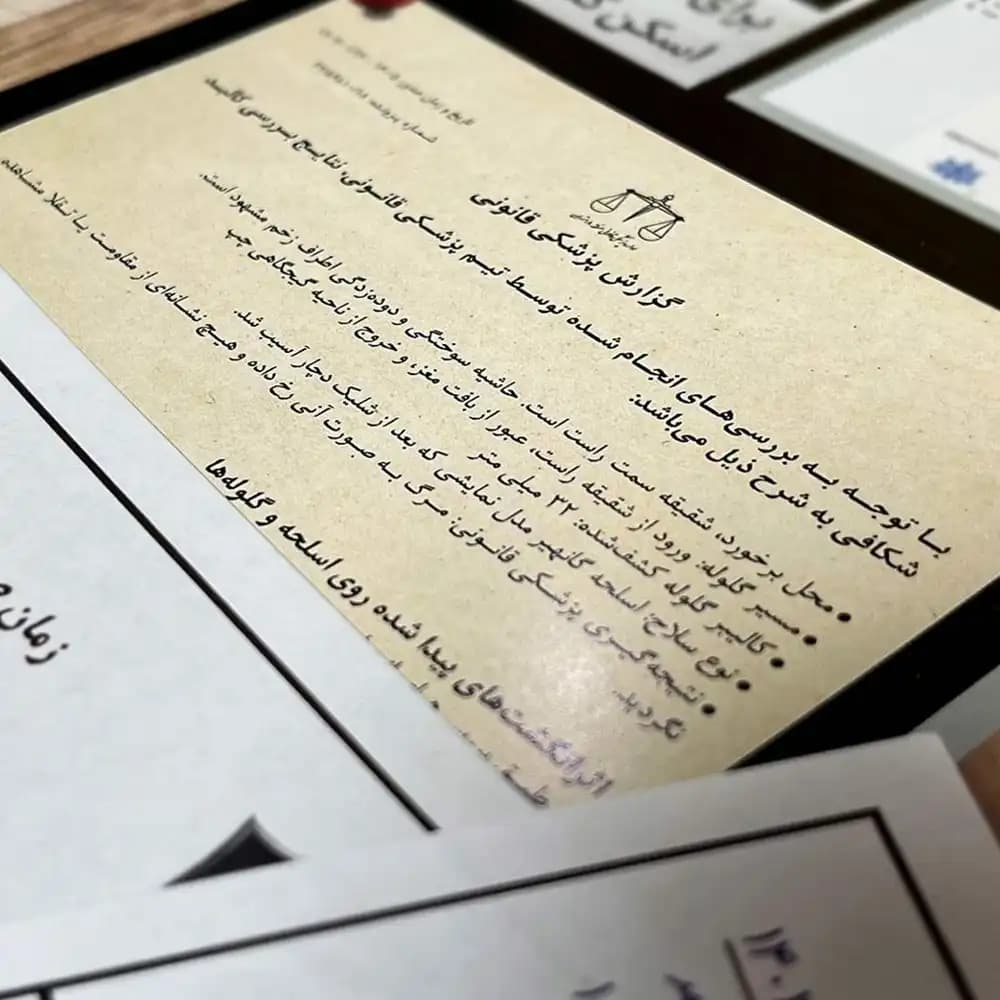 برای
اسکن
گزارش پزشکی قانونی
با توجه به بررسی‌های انجام شده توسط تیم پزشکی قانونی، نتایج بررسی کالبد
شکافی به شرح ذیل می‌باشد:
• محل برخورد، شقیقه سمت راست است. حاشیه سوختگی و دوده‌زدگی اطراف زخم مشهود است.
• مسیر گلوله: ورود از شقیقه راست، عبور از بافت مغز، و خروج از ناحیه گیجگاهی چپ
• کالیبر گلوله کشف‌شده: ۲۲ میلی متر
• نوع سلاح: اسلحه کانهیر مدل نمایشی که بعد از شلیک دچار آسیب شد.
• نتیجه‌گیری پزشکی قانونی: مرگ به صورت آنی رخ داده و هیچ نشانه‌ای از مقاومت یا تقلا مشاهده
نگردید.
اثرانگشت‌های پیدا شده روی اسلحه و گلوله‌ها
زمان